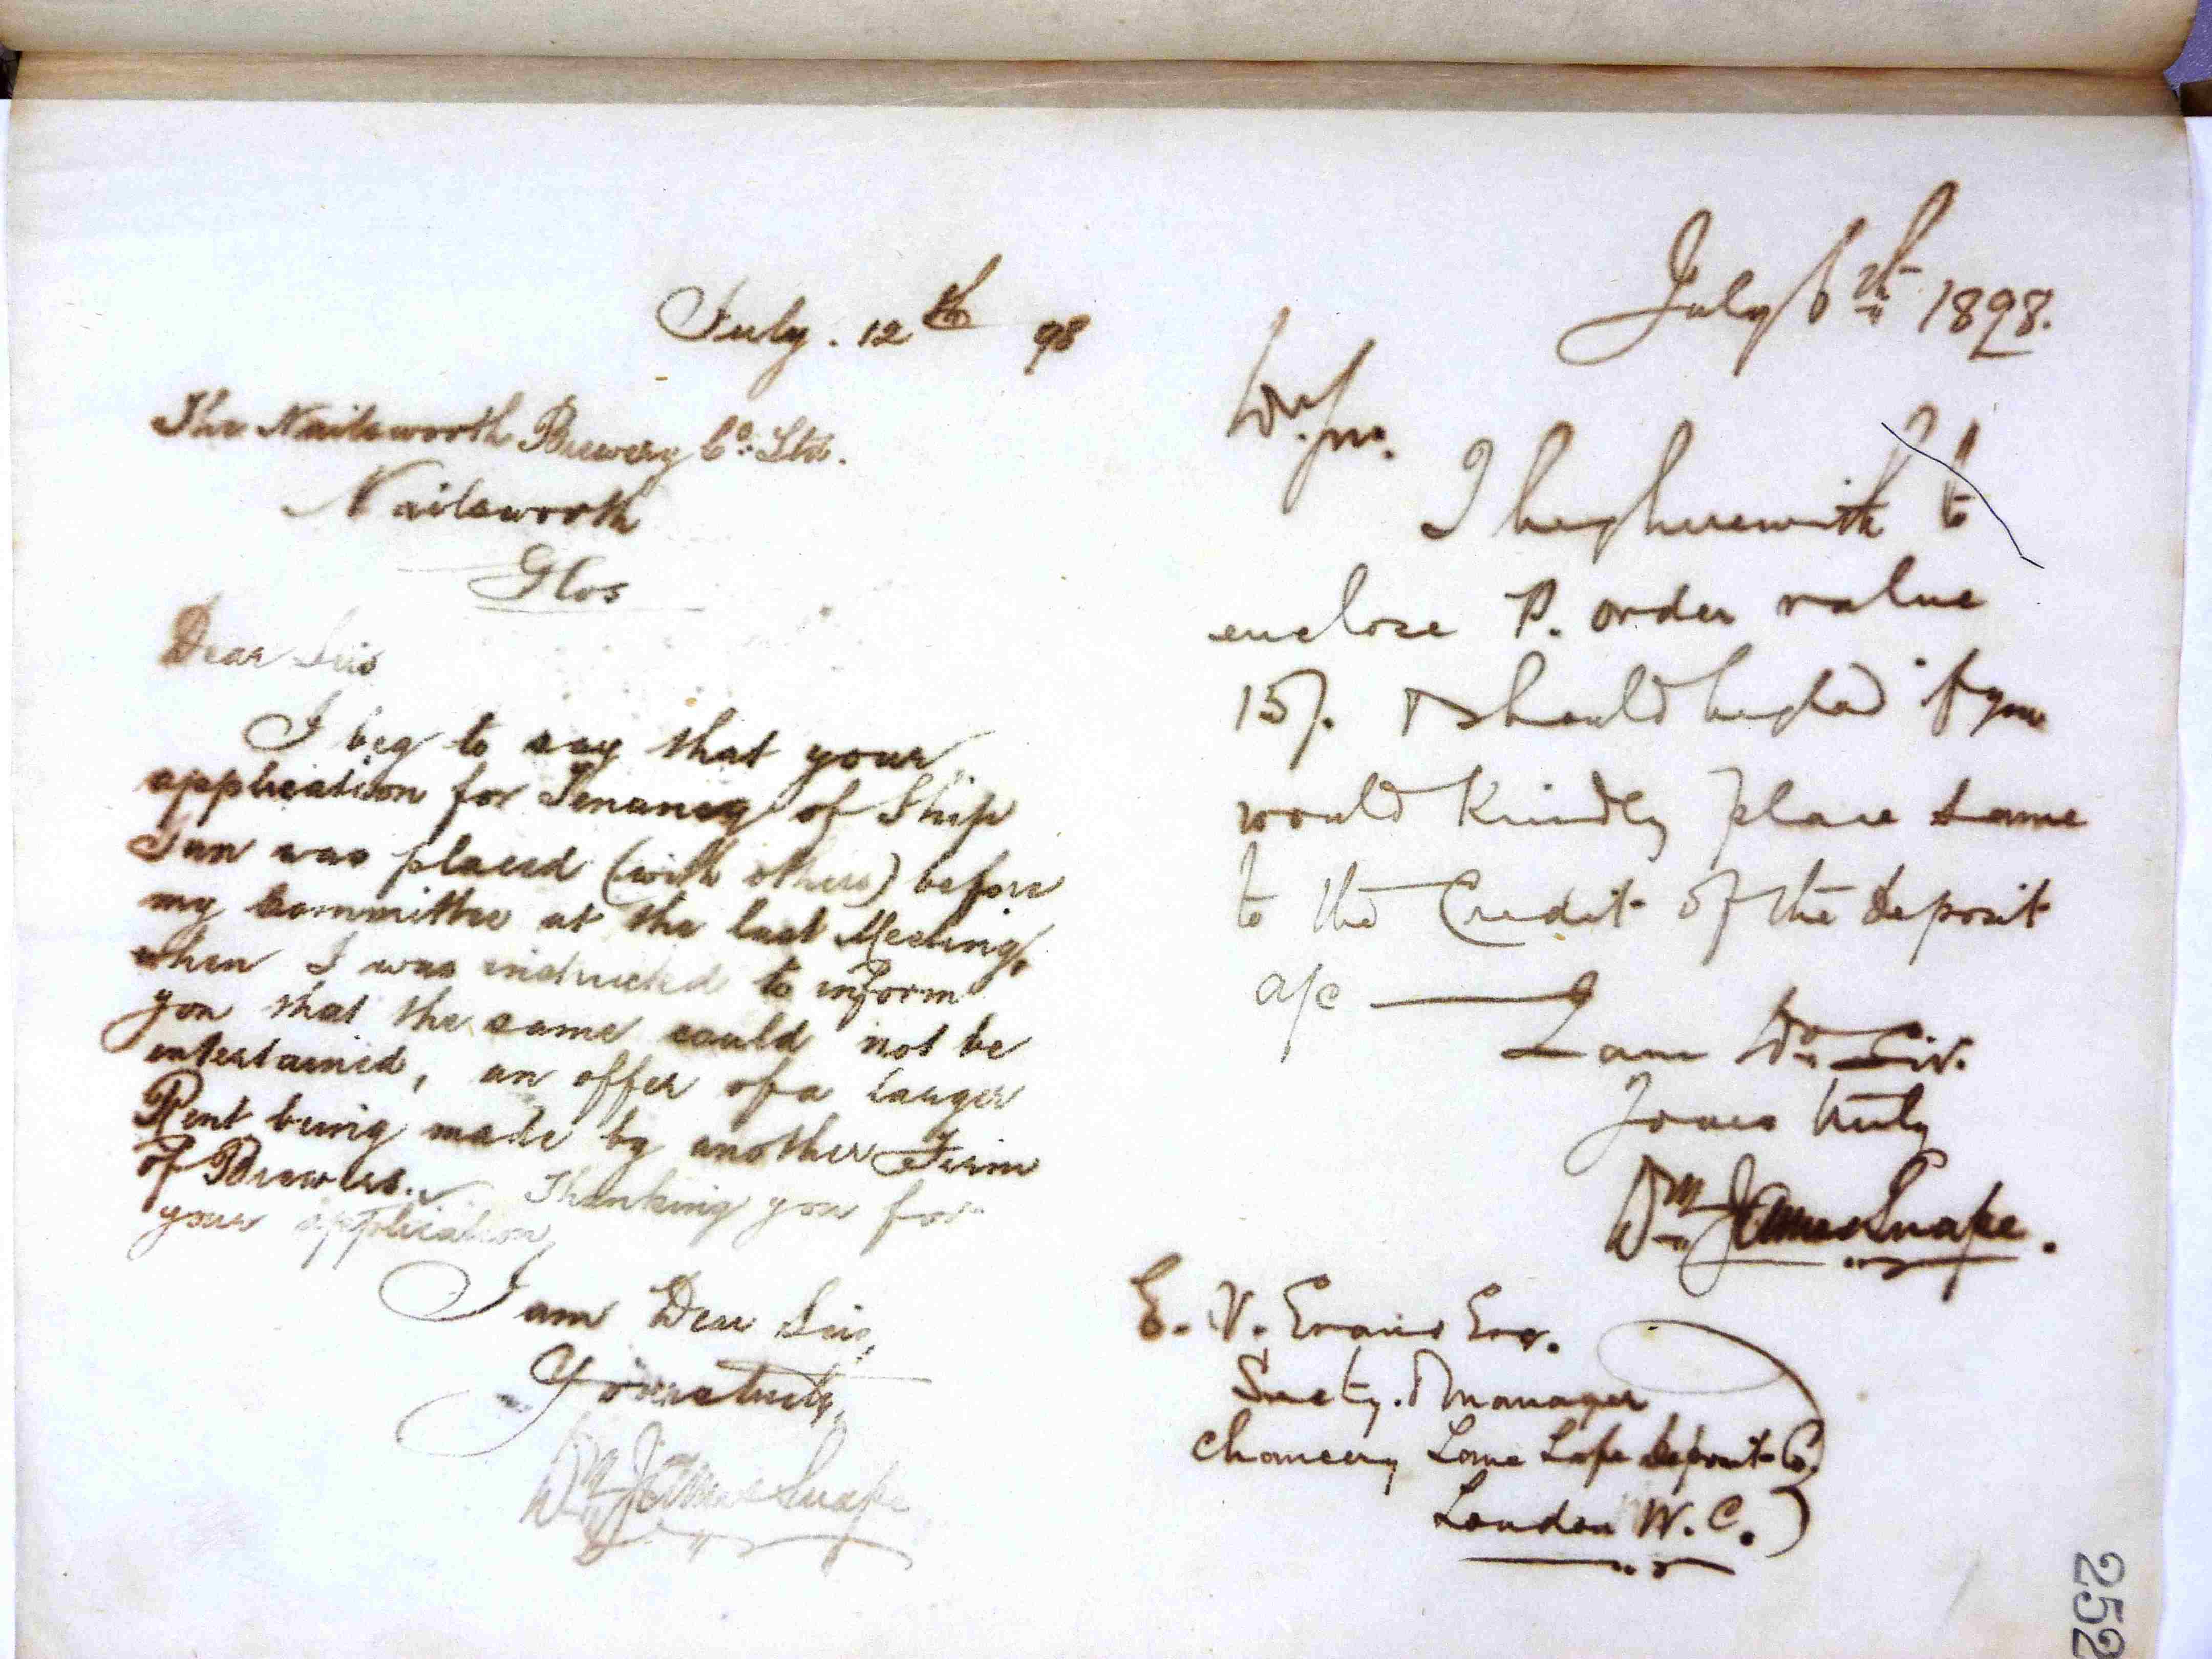 July. 12th 98
The Nailsworth Brewery Co. Ltd.
Nailsworth
Glos
Dear Sirs
I beg to say that your
application for Tenancy of Ship
Inn was placed (with others) before
my Committee at the last Meeting,
when I was instructed to inform
you that the same could not be
entertained, an offer of a larger
Rent being made by another Firm
of Brewers. Thanking you for
your application,
I am Dear Sirs,
Yours truly,
Wm James Snape
July 6th 1898.
Dr. Sir.
I beg herewith to
enclose P. order value
15/. & should be glad if you
would kindly place same
to the Credit of the deposit
a/c
I am Dr. Sir.
Yours truly
Wm James Snape.
E. V. Evans Esq.
Secty. & Manager
Chancery Lane Safe deposit Co.
London W.C.)
252